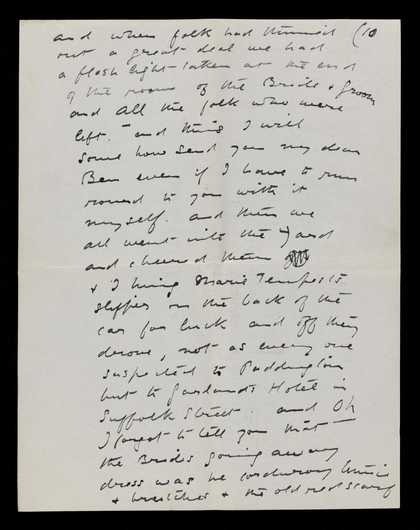 and when folk had thinned (10
out a great deal we had
a flash light taken at the end
of the room of the Bride & Groom
and all the folk who were
left. - and this I will
some how send you my dear
Ben even if I have to run
round to you with it
myself. and then we
all went into the yard
and cheered them
& I hung Marie Tempest's
slippers on the back of the
car for luck and off they
drove, not as every one
suspected to Paddington
but to Garlands Hotel in
Suffolk Street. and Oh
I forgot to tell you that
the Brides going away
dress was he corduroy tunic
& breeches & the old red scarf